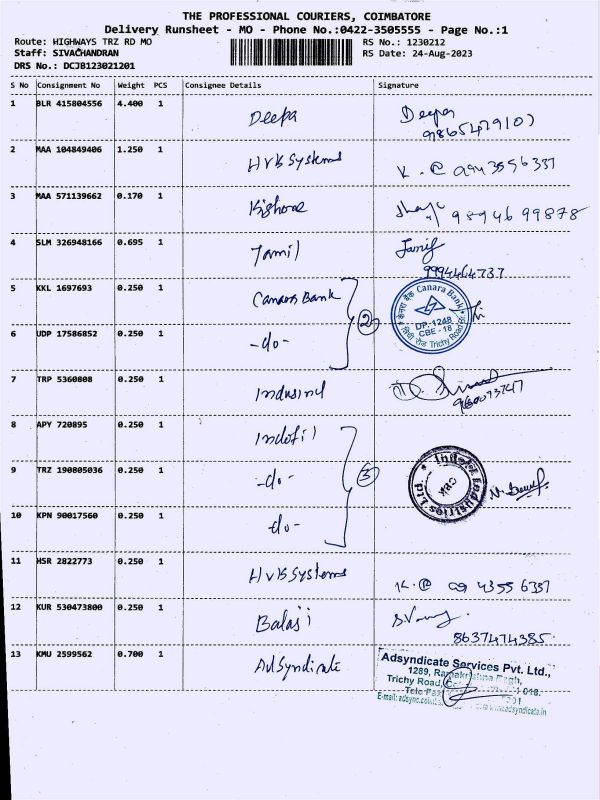 THE PROFESSIONAL COURIERS, COIMBATORE
Delivery Runsheet - MO - Phone No.:0422-3505555 - Page No.:1
Route: HIGHWAYS TRZ RD MO RS No.: 1230212
Staff: SIVACHANDRAN RS Date: 24-Aug-2023
DRS No.: DCJB123021201
S No Consignment No Weight PCS Consignee Details Signature
1 BLR 415804556 4.400 1 Deepa Deepa
2 MAA 104849406 1.250 1 HVB Systems
3 MAA 571139662 0.170 1 Kishore 9894699878
4 SLM 326948166 0.695 1 Tamil
9994464737
5 KKL 1697693 0.250 1 Canara Bank
2
Canara Bank
DP-1248
CBE - 18
Trichy Road
6 UDP 17586852 0.250 1 -do-
7 TRP 5360808 0.250 1 Indusind
8 APY 720895 0.250 1 Indofil
3
9 TRZ 190805036 0.250 1 -do-
Industries
10 KPN 90017560 0.250 1 -do-
11 HSR 2822773 0.250 1 HVB Systems
12 KUR 530473800 0.250 1 Balaji
8637474385
13 KMU 2599562 0.700 1 AdSyndicate
Adsyndicate Services Pvt. Ltd.,
1289, Ramakrishna
Trichy Road, 018.
Tele